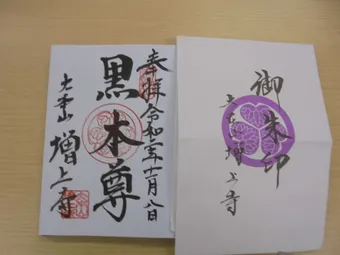 奉拝 令和二年十一月八日
黒本尊
大本山 増上寺
御朱印
大本山 増上寺